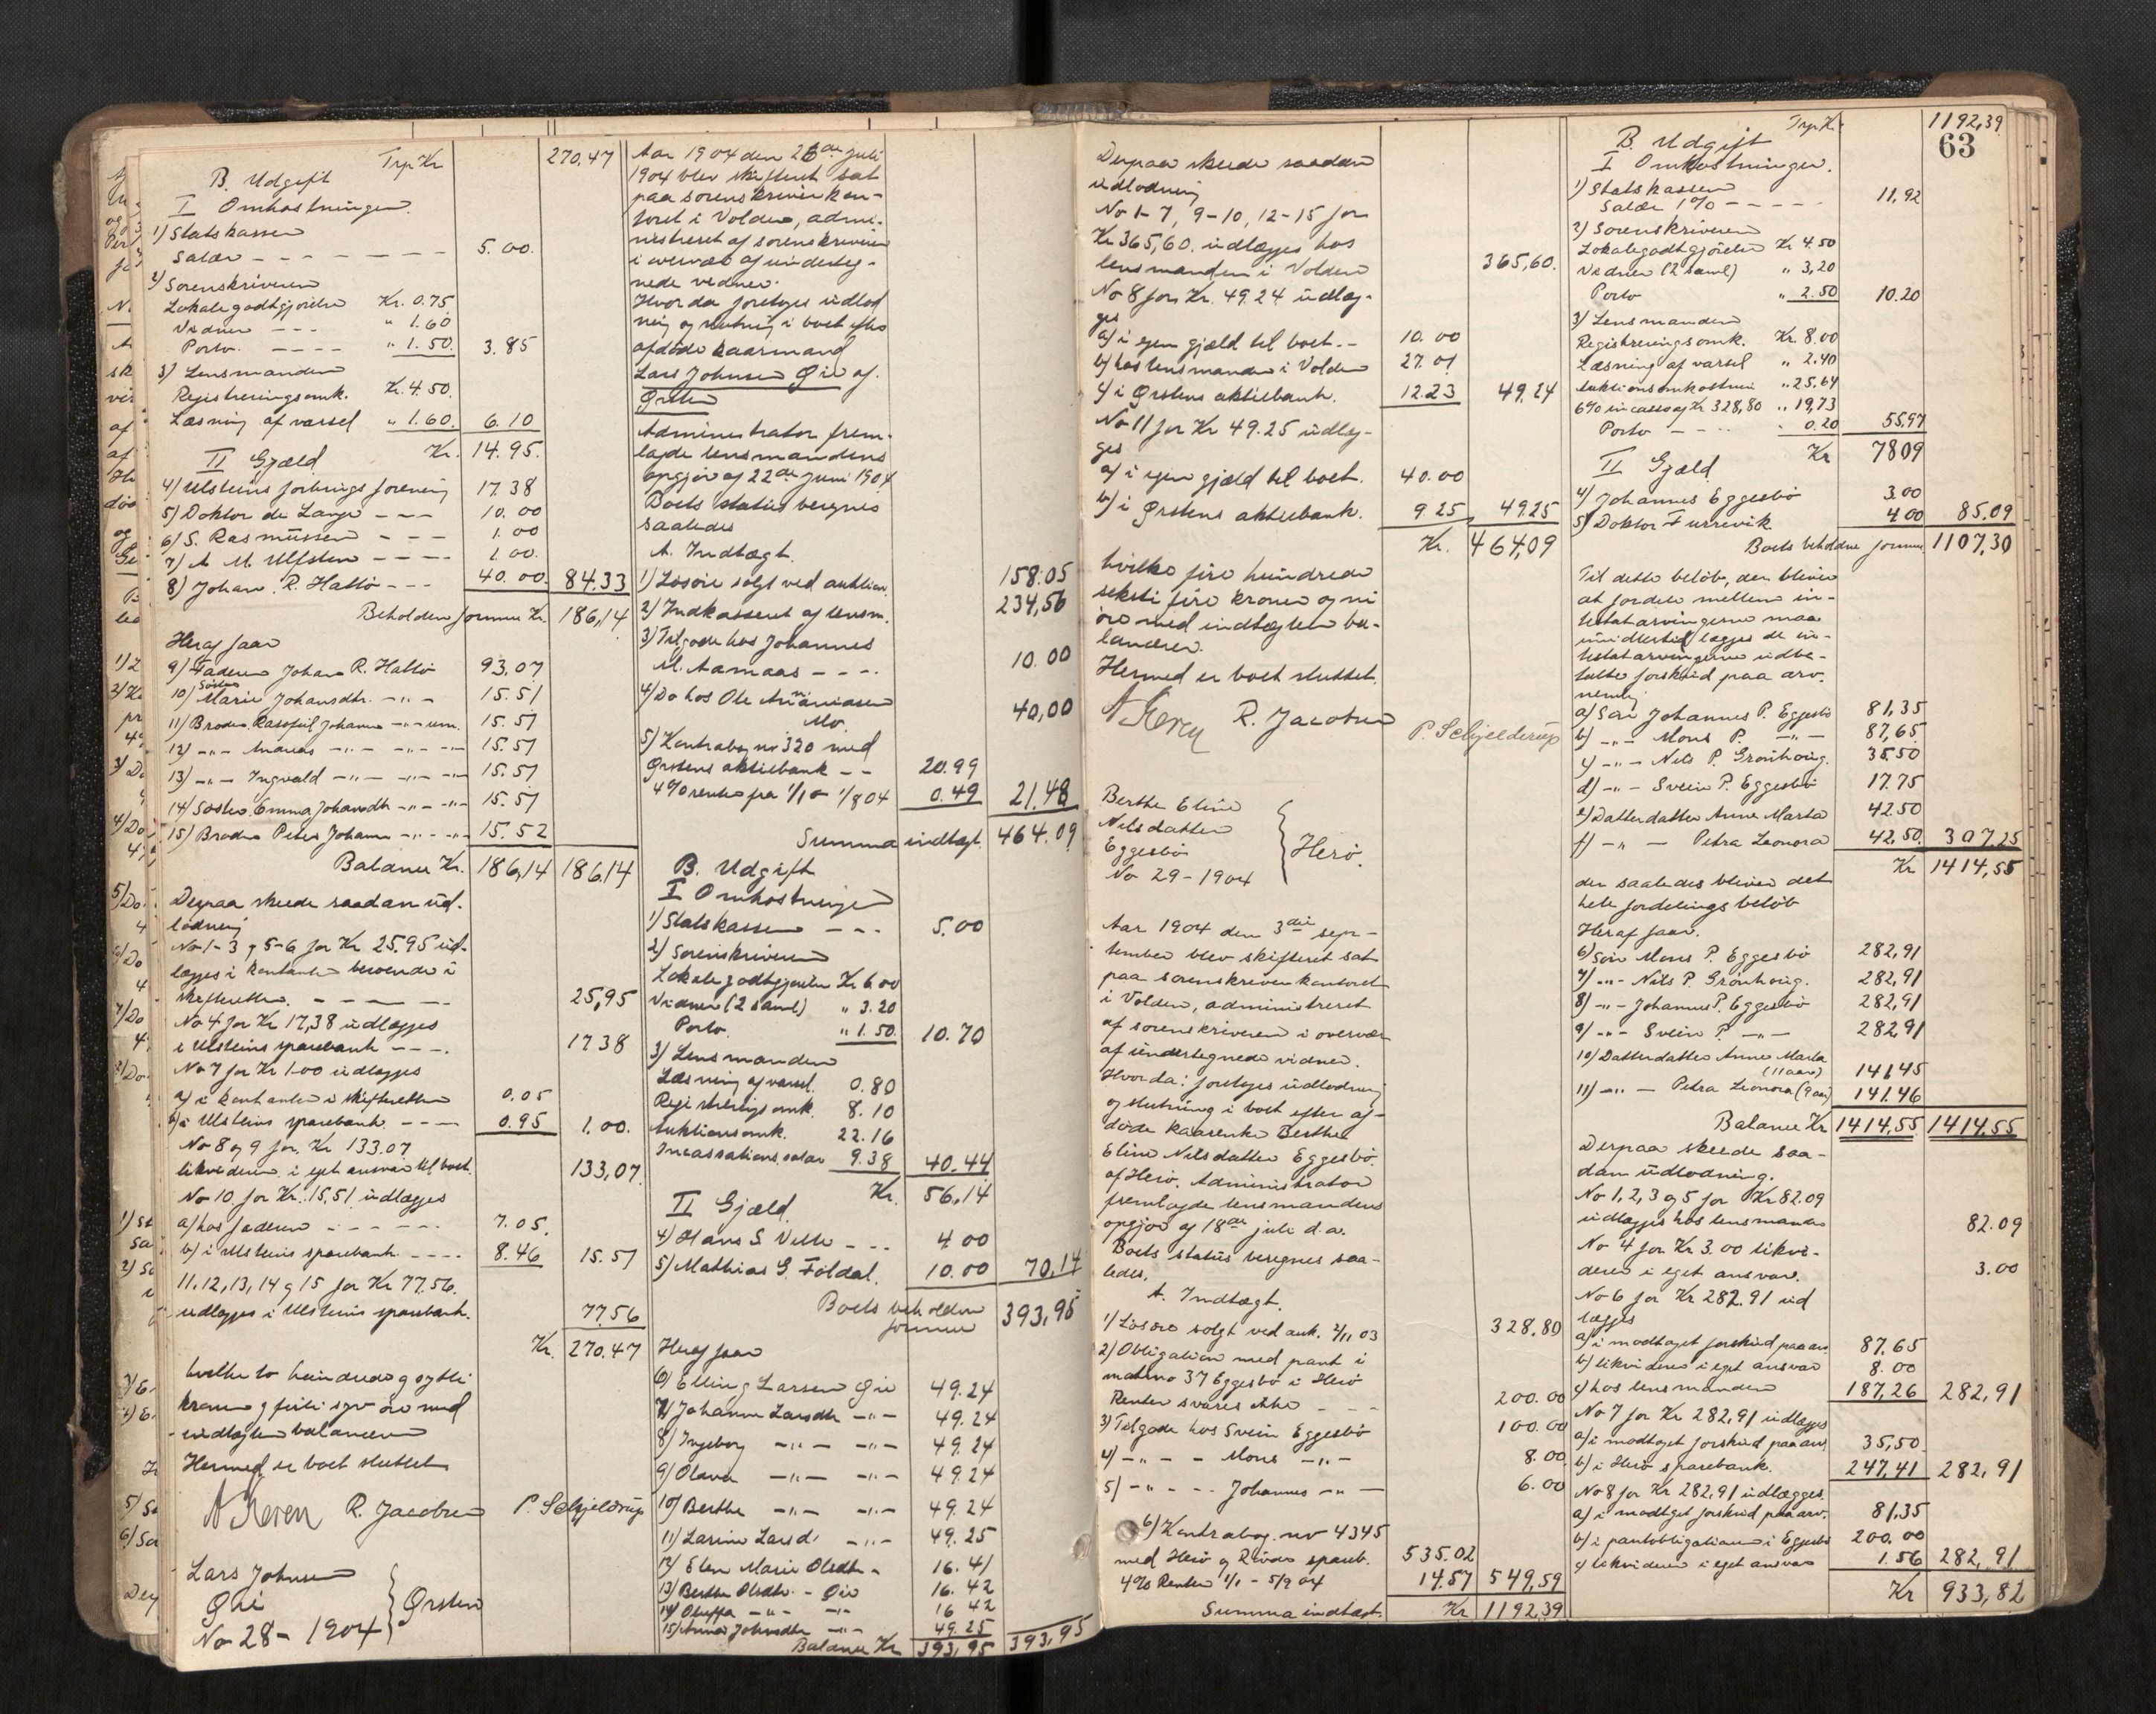 Trp Kr 270,47
B. Udgift
I Omkostninger.
1) Statskassen
Salær - - - - - - - 5.00.
2) Sorenskriveren
Lokalegodtgjørelse Kr. 0.75
Vidner - - - " 1.60
Porto. - - - - " 1.50. 3.85
3) Lensmanden
Registreringsomk. Kr. 4.50.
Læsning af varsel " 1.60. 6.10
Kr. 14.95.
II Gjæld
4) Ulsteins forbrugsforening 17.38
5) Doktor de Lange - - - 10.00
6) S. Rasmüssen - - - 1.00
7) A M Ulfsten - - - - 1.00.
8) Johan R. Hallø - - - 40.00. 84.33
Beholden formue Kr. 186,14
Heraf faar
9) Faderen Johan R. Hallø 93,07
10) Søster Marie Johansdtr. - " - 15.51
11) Broder Rasmus Johans - " - um. 15.51
12) - " - Andreas - " - - " - - " - 15.51
13) - " - Ingvald - " - - " - - " - 15.51
14) Søster Emma Johansdtr - " - - " - 15.51
15) Broder Peter Johans - " - - " - 15.52
Balance Kr. 186,14 186.14
Derpaa skeede saadan ud-
lodning
No 1-3 og 5-6 for Kr 25.95 ud-
lægges i kontanter beroende i
skifteretten. - - - - - 25,95
No 4 for Kr 17,38 udlægges
i Ulsteins sparebank - - - . 17 38
No 7 for Kr 1.00 udlægges
a) i kontanter i skifteretten 0.05
b) i Ulsteins sparebank - - - 0.95 1.00.
No 8 og 9 for Kr 133.07
likviderer i eget ansvar til boet. 133,07
No 10 for Kr. 15.51 udlægges
a) hos faderen - - - - - 7.05.
b) i Ulsteins sparebank - - - - 8.46 15.51
11, 12, 13, 14 og 15 for Kr 77.56.
udlægges i Ulsteins sparebank. 77.56
Kr. 270.47
hvilke to hundrede og sytti
kroner og firti syv øre med
indtægten balancerer
Hermed er boet sluttet
R. Jacobsen P. Schjelderup
Lars Johnsen
Øie
No 28 - 1904
Ørsten
Aar 1904 den 26de juli
1904 blev skifteret sat
paa sorenskriverkon-
toret i Volden, admi-
nistreret af sorenskriveren
i overvær af underteg-
nede vidner.
Hvorda foretoges udlod
ning og slutning i boet efter
afdøde kaarmand
Lars Johnsen Øie af
Ørsten
Administrator frem-
lagde lensmandens
opgjør af 22de juni 1904
Boets status beregnes
saaledes
A. Indtægt.
1) Løsøre solgt ved auktion. 158.05
2) Indkasseret af lensm. 234,56
3) Tilgode hos Johannes
M. Aamaas - - - - 10.00
4) Do hos Ole Ananiasen
Mo. 40,00
5) Kontrabog nr 320 med
Ørstens aktiebank - - 20.99
4% renter fra 1/1 - 1/8 04 0.49 21.48
Summa indtægt. 464.09
B. Udgift
I Omkostninger
1) Statskassen - - - 5.00
2) Sorenskriveren
Lokalegodtgjørelse Kr 6.00
Vidner (2 saml) " 3.20
Porto. " 1.50. 10.70
3) Lensmanden
Læsning af varsel. 0.80
Registreringsomk. 8.10
Auktionsomk. 22.16
Incassationssalær 9.38 40.44
Kr. 56,14
II Gjæld.
4) Hans S Velle - - - 4.00
5) Mathias G. Foldal. 10.00 70,14
Boets beholden
formue 393,95
Heraf faar
6) Elling Larsen Øie 49.24
7) Johanne Larsdtr - " - 49.24
8) Ingeborg - " - - " - 49.24
9) Olava - " - - " - 49.24
10) Berthe - " - - " - 49.24
11) Larine Larsd. - " - 49.25
12) Elen Marie Olsdtr - 16.41
13) Berthe Olsdtr. - Øie 16.42
14) Oluffa - " - - " - 16 42
15) Anne Johnsdtr - " - 49.25
Balance Kr 393,95 393,95
Derpaa skeede saadan
udlodning
No 1-7, 9-10, 12-15 for
Kr 365,60. udlægges hos
lensmanden i Volden 365,60.
No 8 for Kr. 49.24 udlæg-
ges
a) i egen gjæld til boet. - 10.00
b) hos lensmanden i Volden 27.01
c) i Ørstens aktiebank. 12.23 49.24
No 11 for Kr 49.25 udlæg-
ges
a) i egen gjæld til boet. 40.00
b) i Ørstens aktiebank. 9.25 49.25
Kr. 464,09
hvilke fire hundrede
seksti fire kroner og ni
øre med indtægten ba-
lancerer.
Hermed er boet sluttet.
R. Jacobsen P. Schjelderup
Berthe Eline
Nilsdatter
Eggesbø
No 29 - 1904
Herø.
Aar 1904 den 3die sep-
tember blev skifteret sat
paa sorenskriverkontoret
i Volden, administreret
af sorenskriveren i overvær
af undertegnede vidner.
Hvorda: foretoges udlodning
og slutning i boet efter af-
døde kaarenke Berthe
Eline Nilsdatter Eggesbø
af Herø. Administrator
fremlagde lensmandens
opgjør af 18de juli d.a.
Boets status beregnes saa-
ledes.
A. Indtægt.
1) Løsøre solgt ved auk. 2/11 03 328.80
2) Obligation med pant i
matr no 37 Eggesbø i Herø
Renter svares ikke - - - 200.00
3) Tilgode hos Svein Eggesbø 100.00
4) - " - - Mons - " - 8.00
5) - " - - - Johannes - " - 6.00
6) Kontrabog nr 4345
med Herø og Røvde spareb. 535.02
4% Renter 1/1 - 5/9 04 14.57 549,59
Summa indtægt. Kr 1192,39
Trp Kr. 1192,39
63
B. Udgift
I Omkostninger.
1) Statskassen
Salær 1% - - - - - 11,92
2) Sorenskriveren
Lokalegodtgjørelse Kr 4.50
Vidner (2 saml) " 3,20
Porto " 2.50 10.20
3) Lensmanden
Registreringsomk. Kr. 8.00
Læsning af varsel " 2.40
Auktionsomkostninger " 25.64
6% incasso af Kr 328,80 " 19,73
Porto - - - - " 0.20 55,97
Kr 78 09
II Gjæld
4) Johannes Eggesbø 3.00
5) Doktor Furrevik 4.00 85.09
Boets beholdne formue 1107,30
Til dette beløb, der bliver
at fordele mellem in-
testatarvingerne maa
imidlertid lægges de in-
testatarvingerne udbe-
talte forskud paa arv.
nemlig
a) Søn Johannes P. Eggesbø 81,35
b) - " - Mons P. - " - 87,65
c) - " - Nils P. Grønhaug. 35.50
d) - " - Svein P. Eggesbø 17.75
e) Datterdatter Anne Marta 42.50
f) - " - Petra Leonora 42,50. 307,25
Kr 1414,55
der saaledes bliver det
hele fordelingsbeløb
Heraf faar.
6) Søn Mons P. Eggesbø 282,91
7) - " - Nils P. Grønhaug. 282,91
8) - " - Johannes P. Eggesbø 282,91
9) - " - Svein P. - " - 282,91
10) Datterdatter Anne Marta
(11 aar) 141,45
11) - " - Petra Leonora (9 aar) 141.46
Balance Kr 1414,55 1414,55
Derpaa skeede saa-
dan udlodning.
No 1, 2, 3 og 5 for Kr 82.09
udlægges hos lensmanden 82.09
No 4 for Kr 3.00 likvi-
derer i eget ansvar. 3.00
No 6 for Kr 282.91 ud
lægges
a) i modtaget forskud paa arv. 87.65
b) likviderer i eget ansvar 8.00
c) hos lensmanden 187,26 282,91
No 7 for Kr 282,91 udlægges
a) i modtaget forskud paa arv. 35,50
b) i Herø sparebank. 247,41 282,91
No 8 for Kr 282,91 udlægges
a) i modtaget forskud paa arv. 81,35
b) i pantobligationen i Eggesbø 200.00
c) likviderer i eget ansvar 1.56 282,91
Kr 933,82